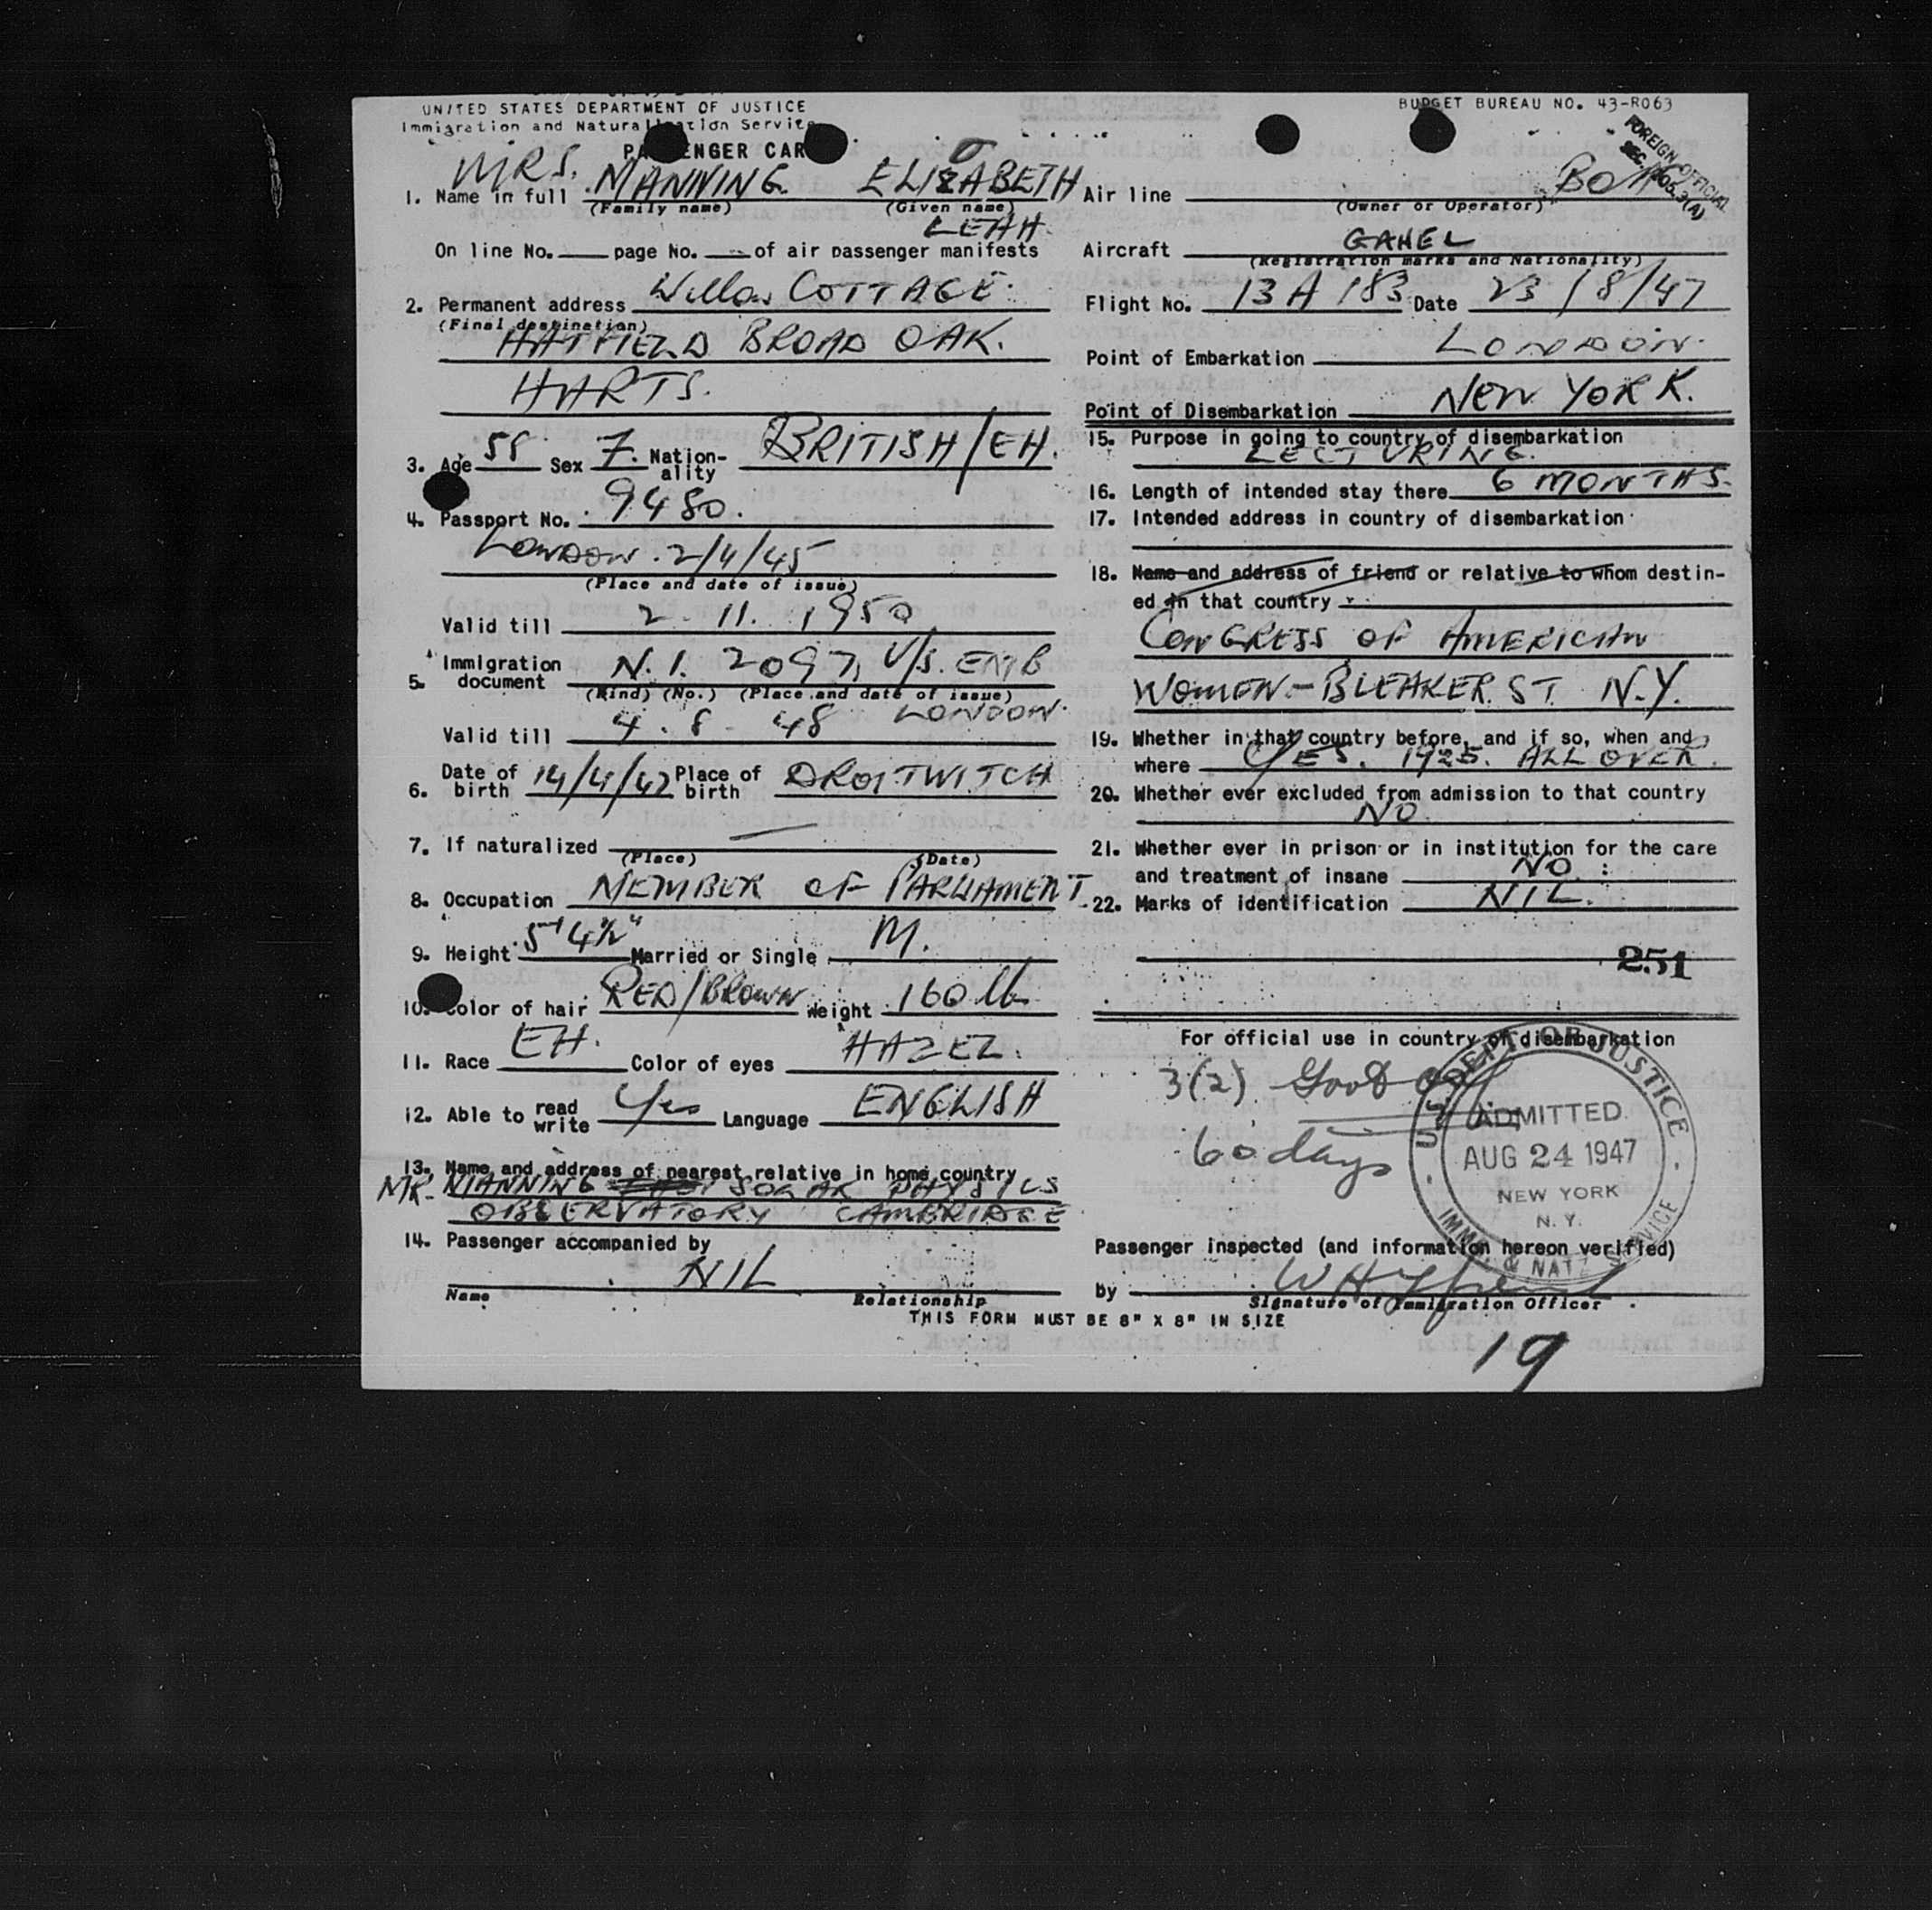 UNITED STATES DEPARTMENT OF JUSTICE
Immigration and Naturalization Service
PASSENGER CARD
BUDGET BUREAU NO. 43-R063
FOREIGN OFFICIAL
SEC. 3(A)
1. Name in full MRS. MANNING ELIZABETH
(Family name) (Given name)
LEAH
On line No. page No. of air passenger manifests
2. Permanent address Willow COTTAGE.
(Final destination)
HATFIELD BROAD OAK.
HARTS.
3. Age 58 Sex F. Nationality BRITISH/EH.
4. Passport No. 9480.
LONDON. 2/11/45
(Place and date of issue)
Valid till 2. 11. 1950
5. Immigration document N.I. 2097, U/S. EMB
(Kind) (No.) (Place and date of issue)
LONDON.
Valid till 4. 8. 48
6. Date of birth 14/4/47 Place of birth DROITWITCH
7. If naturalized —
(Place) (Date)
8. Occupation MEMBER OF PARLIAMENT
9. Height 5' 4½" Married or Single M.
10. Color of hair RED/BROWN Weight 160 lb
11. Race EH. Color of eyes HAZEL.
12. Able to read write Yes Language ENGLISH
13. Name and address of nearest relative in home country
MR. MANNING SOLAR PHYSICS
OBSERVATORY CAMBRIDGE
14. Passenger accompanied by
NIL
Name Relationship
Air line BOA
(Owner or Operator)
Aircraft GAHEL
(Registration marks and Nationality)
Flight No. 13A 183 Date 23/8/47
Point of Embarkation LONDON.
Point of Disembarkation NEW YORK.
15. Purpose in going to country of disembarkation
LECTURING.
16. Length of intended stay there 6 MONTHS.
17. Intended address in country of disembarkation
18. Name and address of friend or relative to whom destin-
ed in that country
CONGRESS OF AMERICAN
WOMEN - BLEAKER. ST. N.Y.
19. Whether in that country before, and if so, when and
where YES. 1925. ALL OVER.
20. Whether ever excluded from admission to that country
NO.
21. Whether ever in prison or in institution for the care
and treatment of insane NO.
22. Marks of identification NIL.
251
For official use in country of disembarkation
3(2) Govt Off
60 days
U.S. DEPT. OF JUSTICE
ADMITTED
AUG 24 1947
NEW YORK
N. Y.
IMM. & NATZ SERVICE
Passenger inspected (and information hereon verified)
by
Signature of Immigration Officer
THIS FORM MUST BE 8" X 8" IN SIZE
19